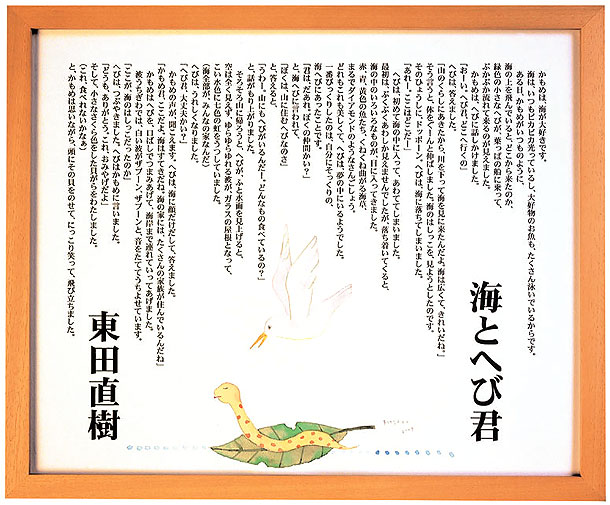 海とへび君
かもめは、海が大好きです。
海は、いつもピカピカ光っているし、大好物のお魚も、たくさん泳いでいるからです。
ある日、かもめがいつものように、
海の上を飛んでいると、どこから来たのか、
緑色の小さなへびが、葉っぱの船に乗って、
ぷかぷか流れて来るのが見えました。
かもめは、へびに話しかけました。
「おーい、へび君、どこへ行くの」
へびは、答えました。
「山のくらしにあきたから、川を下って海を見に来たんだよ。海は広くて、きれいだね。」
そう言うと、体をぐーんと伸ばしました。海のはしっこを、見ようとしたのです。
そのひょうしに、ザ・ボーン、へびは、海に落ちてしまいました。
「あれー、ここはどこだ」
へびは、初めて海の中に入って、あわててしまいました。
最初は、ぶくぶくあわしか見えませんでしたが、落ち着いてくると、
海の中のいろいろなものが、目に入ってきました。
赤、青、黄色の魚たち、くねくね曲がる海草、
まるでダイヤモンドのようなさんごしょう、
どれもこれも美しくて、へびは、夢の中にいるようでした。
一番びっくりしたのは、自分にそっくりの、
海へびにあったことです。
「君は、だあれ、ぼくの仲間かい？」
と、海へびに言われて、
「ぼくは、山に住むへびなのさ」
と、答えると、
「うわー、山にもへびがいるんだ！どんなもの食べているの？」
と、話がもり上がりました。
そろそろ山に帰ろうと、へびが、ふと水面を見上げると、
空は全く見えず、ゆらゆらゆれる波が、ガラスの屋根となって、
こい水色に七色の虹をうつしていました。
（海全部が、みんなの家なんだ）
へびは、うれしくなりました。
「へび君、大丈夫かい？」
かもめの声が、聞こえます。へびは、海に顔だけだして、答えました。
「かもめ君、ここだよ、海はすてきだね。海の家には、たくさんの家族が住んでいるんだね」
かもめはへびを、口ばしでつまみあげて、海岸まで連れていってあげました。
波うちぎわでは、白い波がザブーン、ザブーンと、音をたててうちよせています。
「ここが、海のはしっこだったのか」
へびは、つぶやきました。へびはかもめに言いました。
「どうも、ありがとう。これ、おみやげだよ」
そして、小さなさくら色をした貝がらをわたしました。
（これ、食べれないかなぁ）
と、かもめは思いながら、頭にその貝をのせて、にっこり笑って、飛び立ちました。
東田直樹